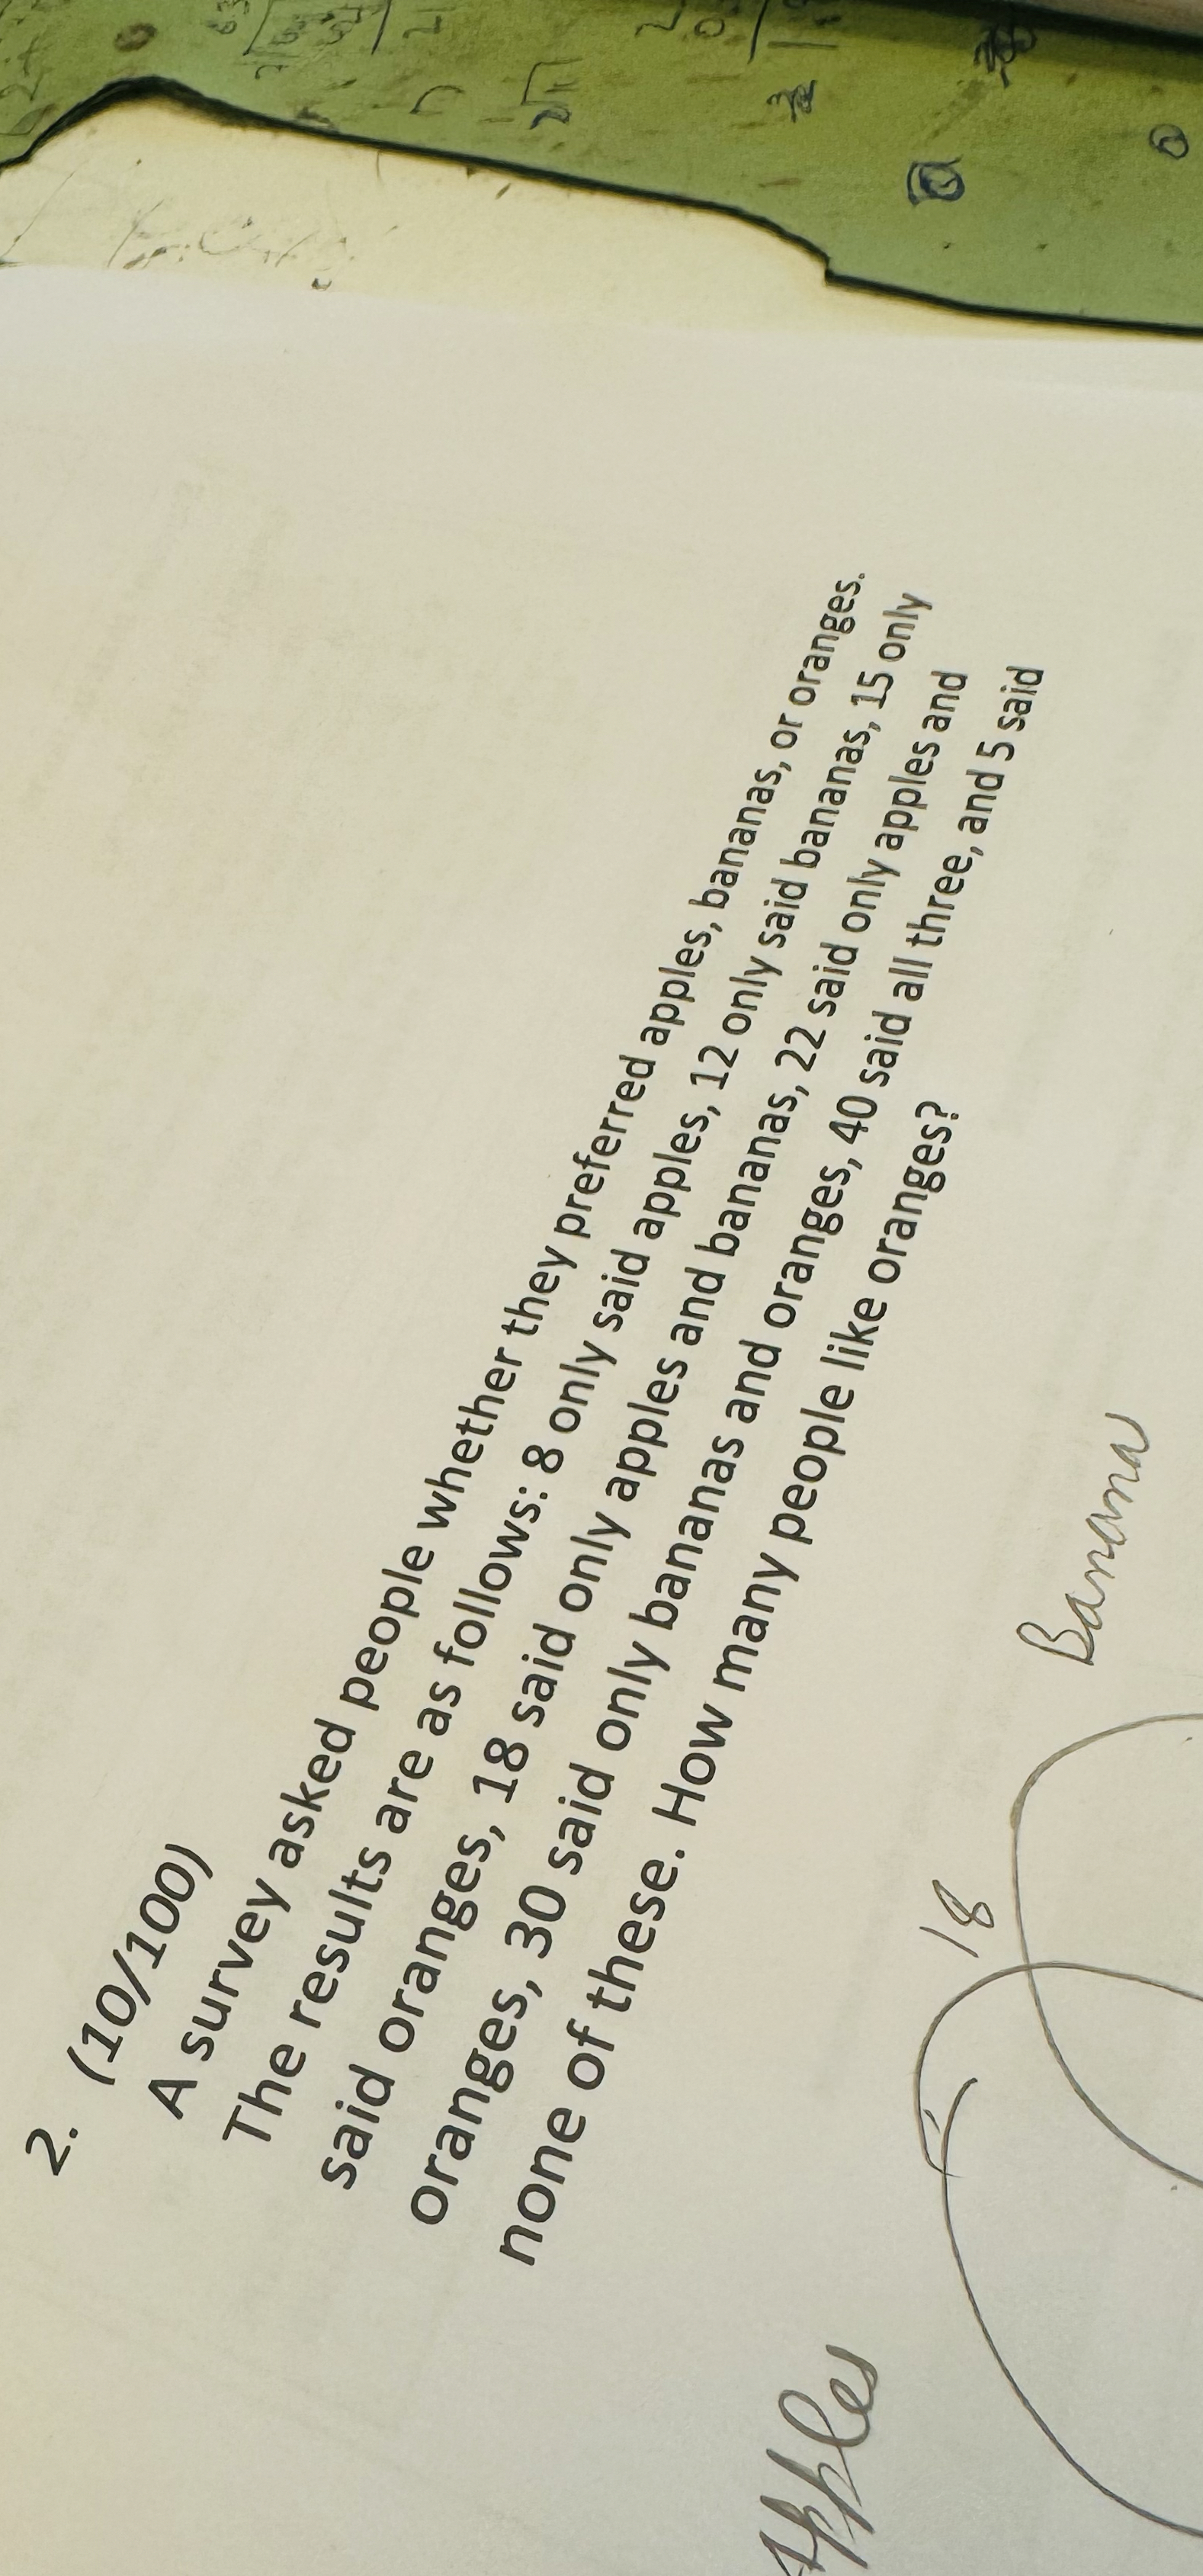 2. (10/100)
A survey asked people whether they preferred apples, bananas, or oranges.
The results are as follows: 8 only said apples, 12 only said bananas, 15 only
said oranges, 18 said only apples and bananas, 22 said only apples and
oranges, 30 said only bananas and oranges, 40 said all three, and 5 said
none of these. How many people like oranges?
Apples
18
Banana